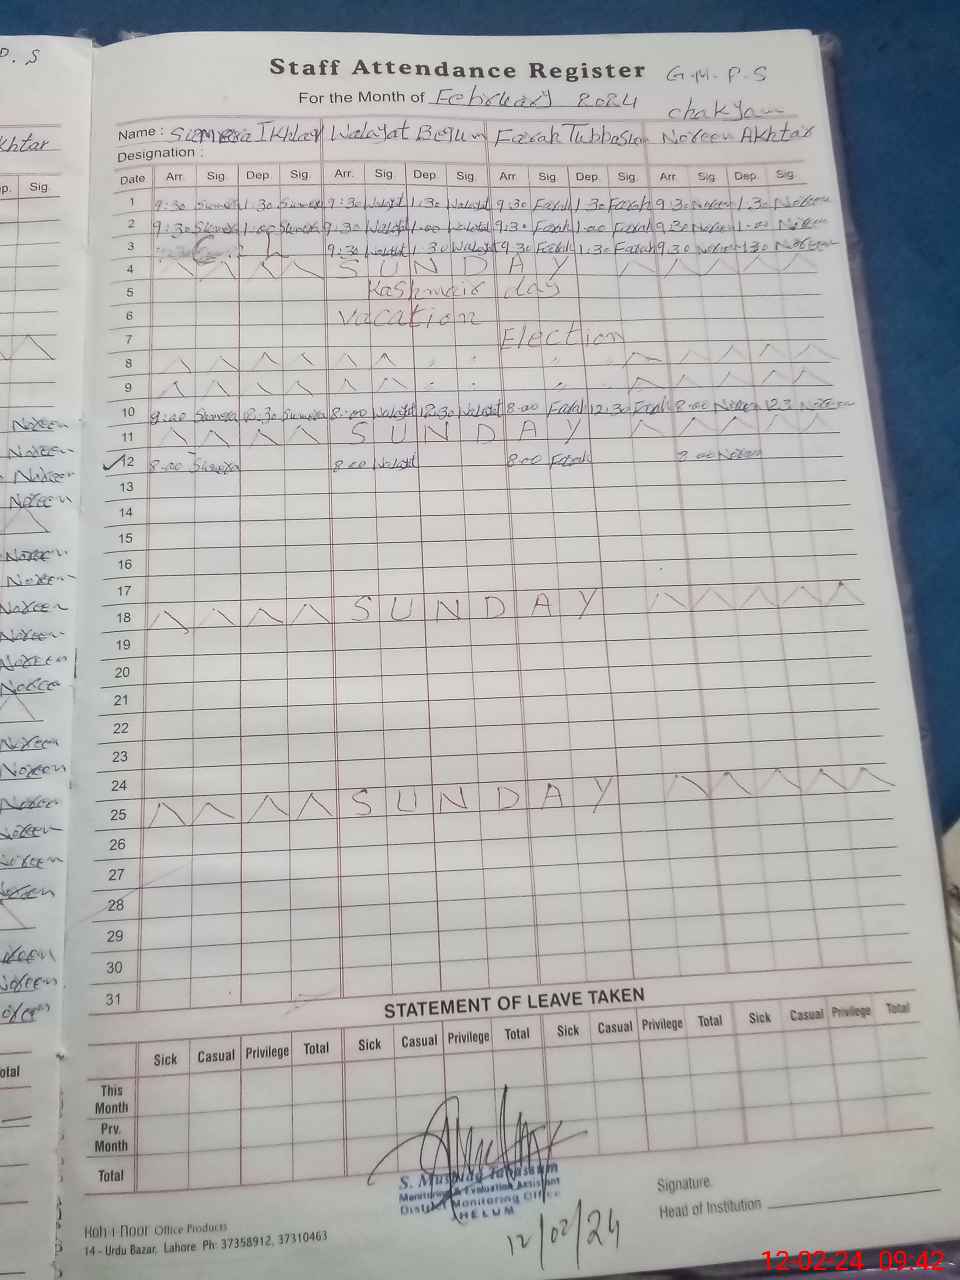 P. S
Staff Attendance Register G.M.P.S
For the Month of February 2024 chakyam
Name : Sumera Ikhlaq Walayat Begum Farah Tubbasum Noreen Akhtar
Designation :
Date Arr. Sig. Dep. Sig. Arr. Sig. Dep. Sig. Arr. Sig. Dep. Sig. Arr. Sig. Dep. Sig.
1 9:30 Sumera 1.30 Sumera 9:30 Walayat 1.30 Walayat 9.30 Farah 1.30 Farah 9.30 Noreen 1.30 Noreen
2 9:30 Sumera 1.00 Sumera 9.30 Walayat 1.00 Walayat 9.30 Farah 1.00 Farah 9.30 Noreen 1.00 Noreen
3 9:30 Walayat 1.30 Walayat 9.30 Farah 1.30 Farah 9.30 Noreen 1.30 Noreen
4 SUNDAY
5 Kashmair day
6 vacation
7 Election
8
9
10 Sumera 12.30 Sumera 8.00 Walayat 12.30 Walayat 8.00 Farah 12.30 Farah 8.00 Noreen Noreen
11 SUNDAY
12 8.00 Sumera 8.00 Walayat 8.00 Farah 8.00 Noreen
13
14
15
16
17
18 SUNDAY
19
20
21
22
23
24
25 SUNDAY
26
27
28
29
30
31
STATEMENT OF LEAVE TAKEN
Sick Casual Privilege Total Sick Casual Privilege Total Sick Casual Privilege Total Sick Casual Privilege Total
This Month
Prv. Month
Total
S. Mushtaq Tabassum
Monitoring & Evaluation Assistant
District Monitoring Office
JHELUM
12/02/24
Signature
Head of Institution
Koh-i-Noor Office Products
14 - Urdu Bazar, Lahore. Ph: 37358912, 37310463
12-02-24 09:42
khtar
ep. Sig.
Noreen
Noreen
Noreen
Noreen
Noreen
Noreen
Noreen
Noreen
Noreen
Noreen
Noreen
Noreen
Noreen
Noreen
Noreen
Noreen
otal